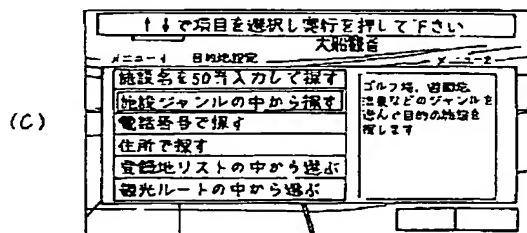 ↑↓で項目を選択し実行を押して下さい
大船観音
メニュー1 目的地設定 メニュー2
施設名を50音入力して探す
施設ジャンルの中から探す
電話番号で探す
住所で探す
登録地リストの中から選ぶ
観光ルートの中から選ぶ
ゴルフ場、遊園地、
温泉などのジャンルを
選んで目的の施設を
探します
(C)